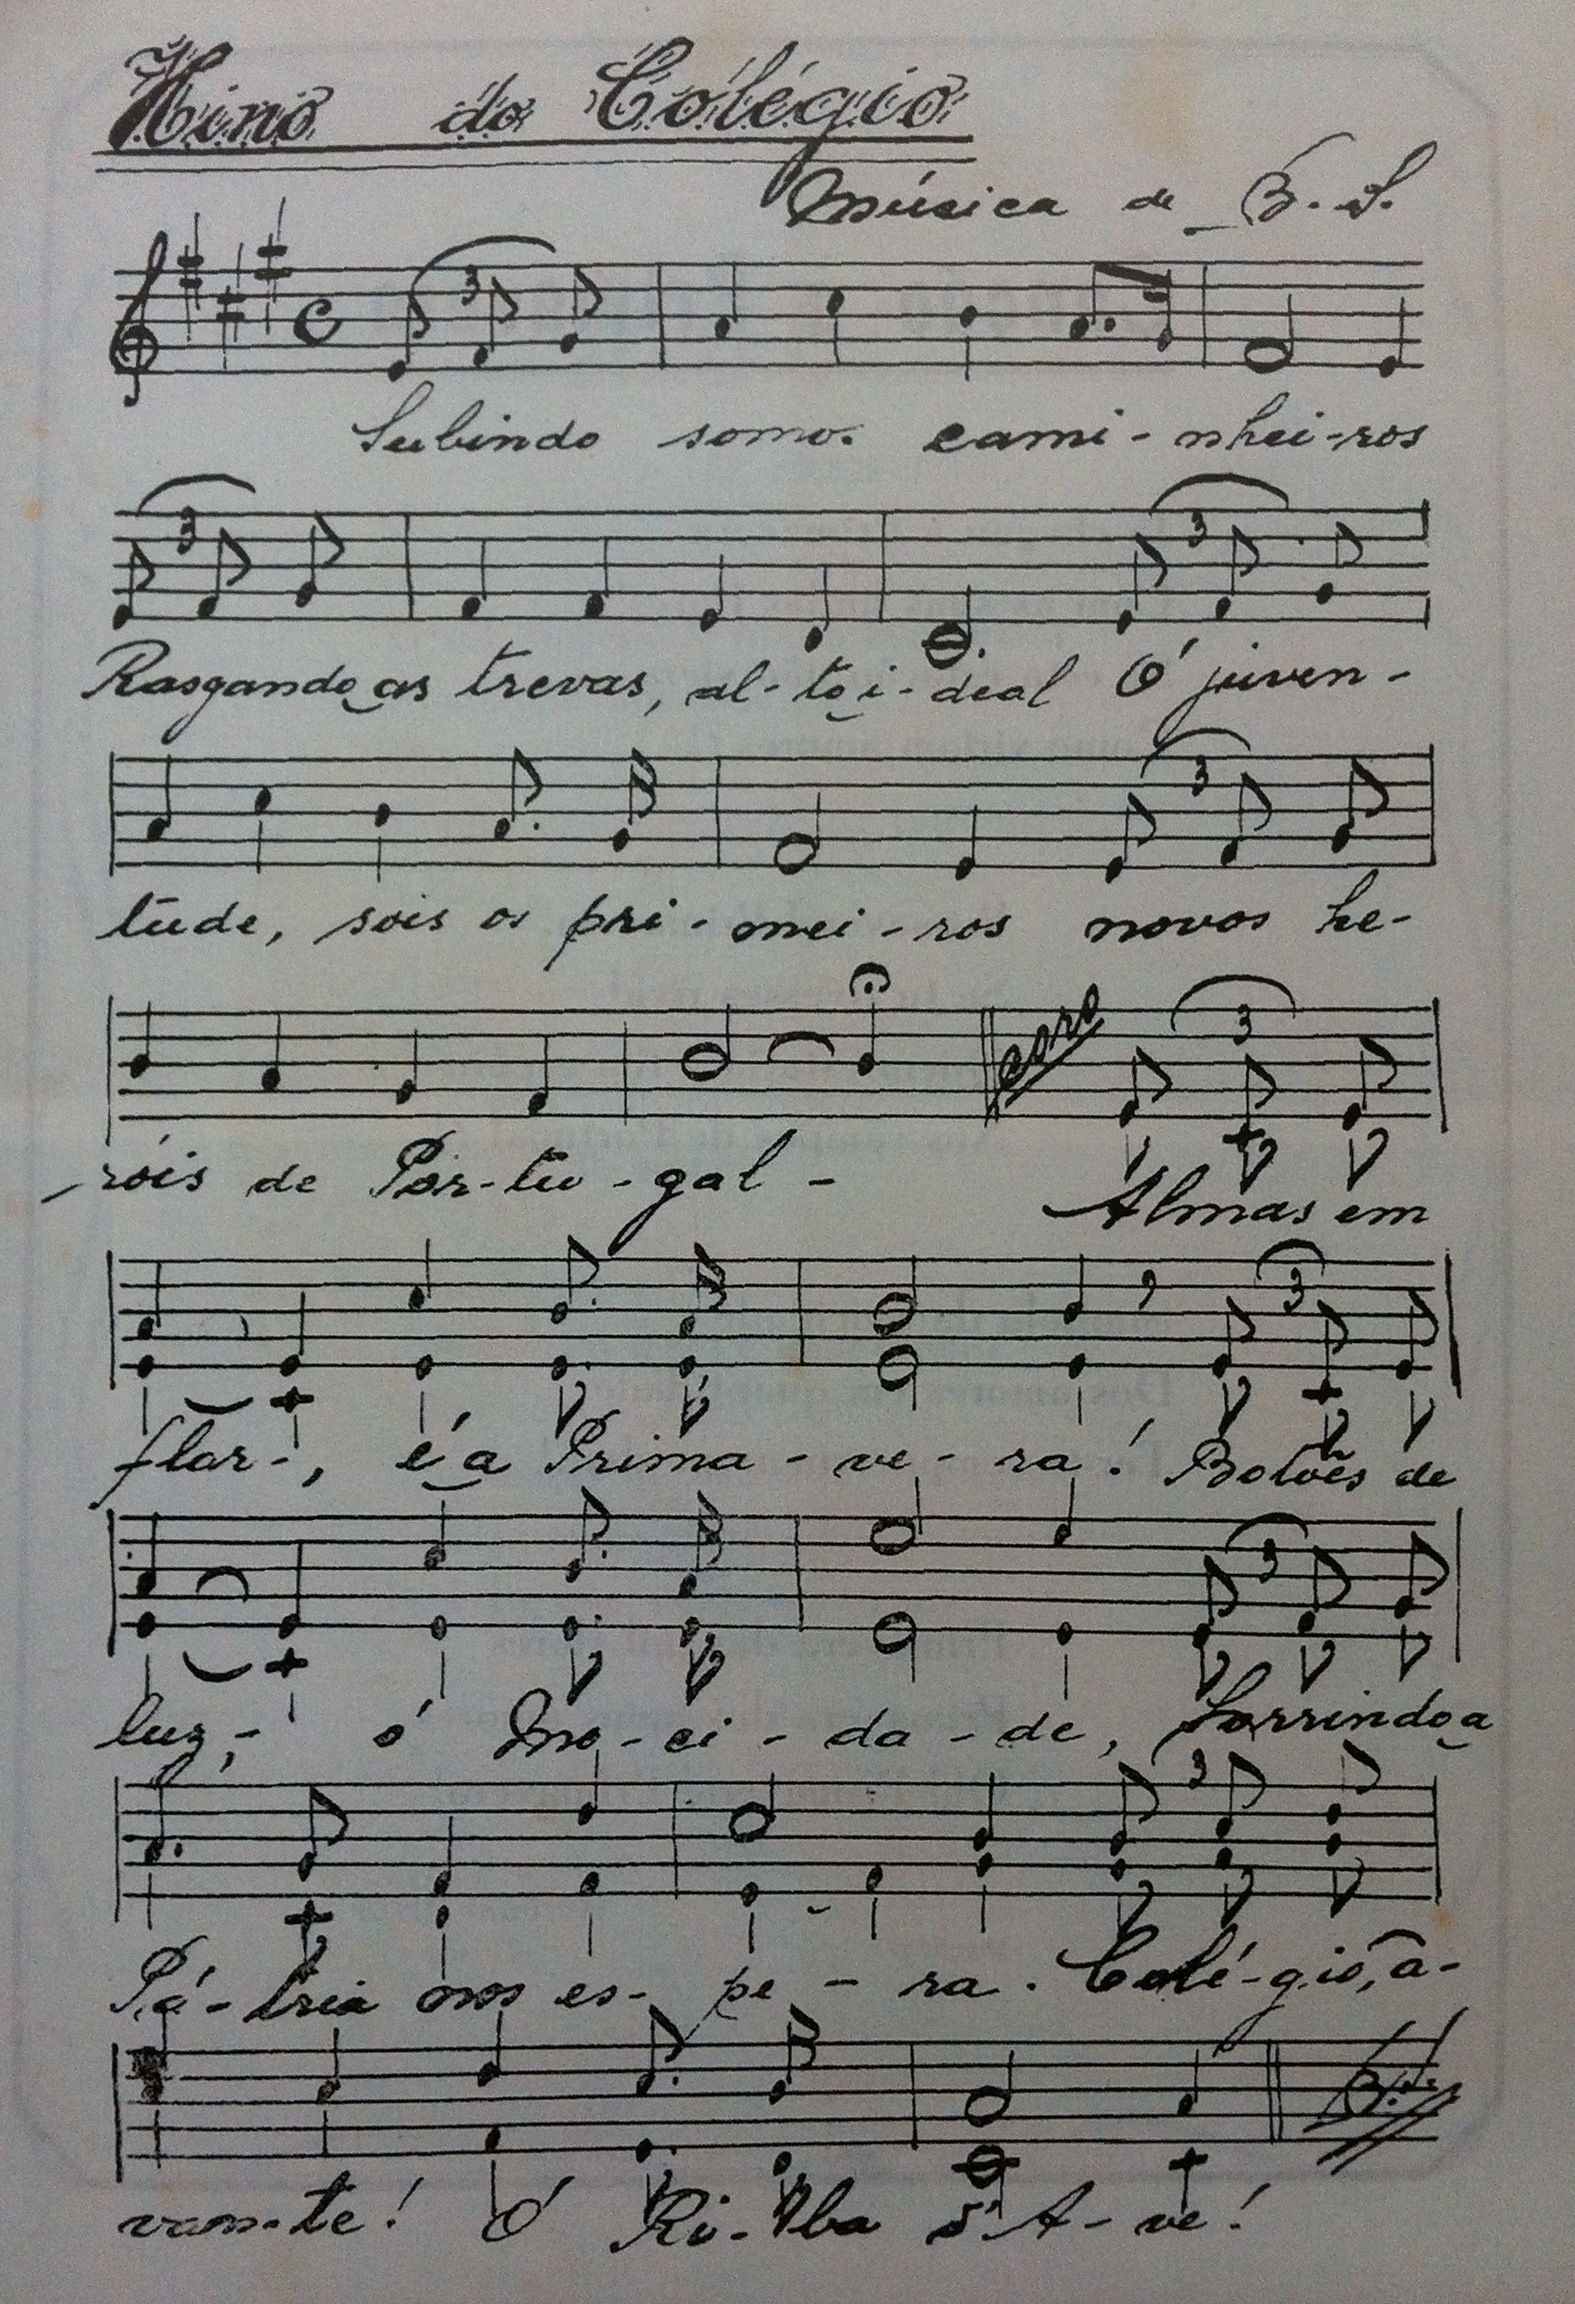 Hino do Colégio
Música de B. S.
Subindo somos cami-nhei-ros
Rasgando as trevas, al-to i-deal Ó juven-
tude, sois os pri-mei-ros novos he-
-róis de Por-tu-gal-
Coro
Almas em
flor-, é a Prima-ve-ra! Botões de
luz,- ó Mo-ci-da-de, Sorrindo a
Pá-tria nos es-pe-ra. Colé-gio, a-
van-te! Ó Ri-ba d'A-ve!